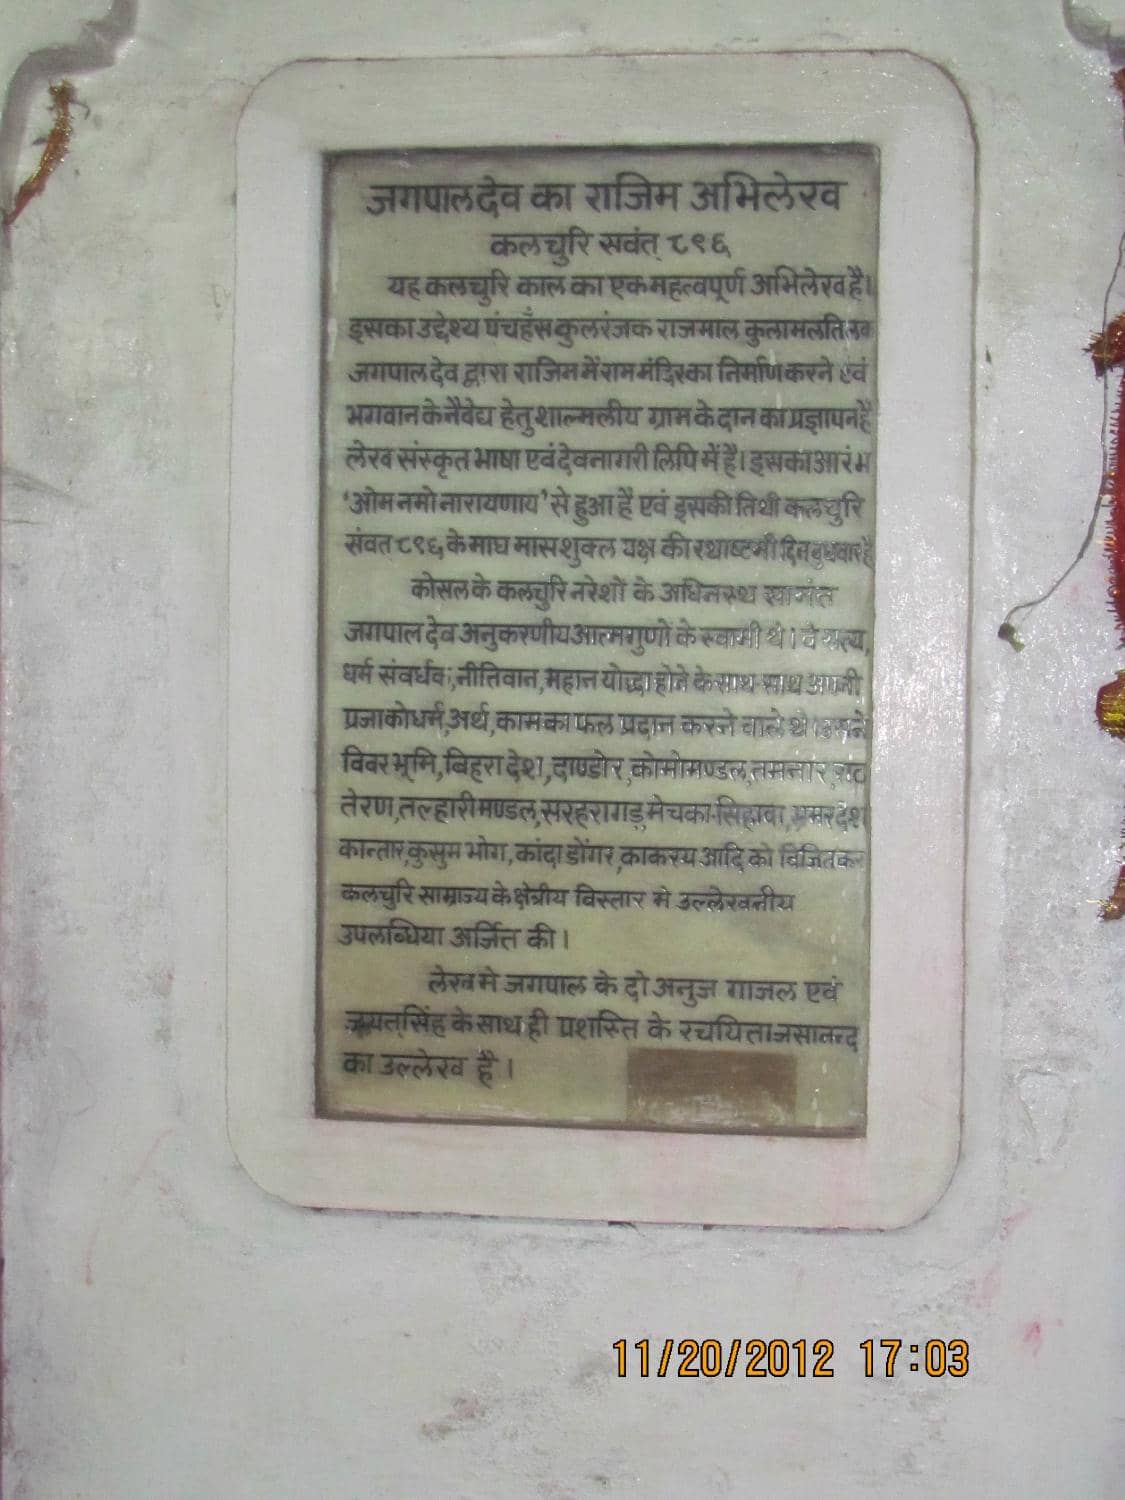 जगपालदेव का राजिम अभिलेख
कलचुरि सवंत् ८९६
यह कलचुरि काल का एक महत्वपूर्ण अभिलेख है।
इसका उद्देश्य पंचहँस कुलरंजक राजमाल कुलामलतिलक
जगपाल देव द्वारा राजिम में राम मंदिर का निर्माण करने एवं
भगवान के नैवेद्य हेतु शाल्मलीय ग्राम के दान का प्रज्ञापन है
लेख संस्कृत भाषा एवं देवनागरी लिपि में है। इसका आरंभ
'ओम नमो नारायणाय' से हुआ है एवं इसकी तिथी कलचुरि
संवत ८९६ के माघ मास शुक्ल पक्ष की रथाष्टमी दिन बुधवार है
कोसल के कलचुरि नरेशों के अधिनस्थ सामंत
जगपाल देव अनुकरणीय आत्मगुणों के स्वामी थे। वे सत्य,
धर्म संवर्धक, नीतिवान, महान योद्धा होने के साथ-साथ अपनी
प्रजा को धर्म, अर्थ, काम का फल प्रदान करने वाले थे। उसने
विवर भूमि, बिहरा देश, दाण्डोर, कोमोमण्डल,
तेरण, तल्हारी मण्डल, सरहरागड़, मेचका-सिहावा, भ्रमरदेश
कान्तार, कुसुम भोग, कांदा डोंगर, काकरय आदि को विजितकर
कलचुरि साम्राज्य के क्षेत्रीय विस्तार मे उल्लेखनीय
उपलब्धिया अर्जित की।
लेख मे जगपाल के दो अनुज गाजल एवं
जयतसिंह के साथ ही प्रशस्ति के रचयिता जसानन्द
का उल्लेख है।
11/20/2012 17:03